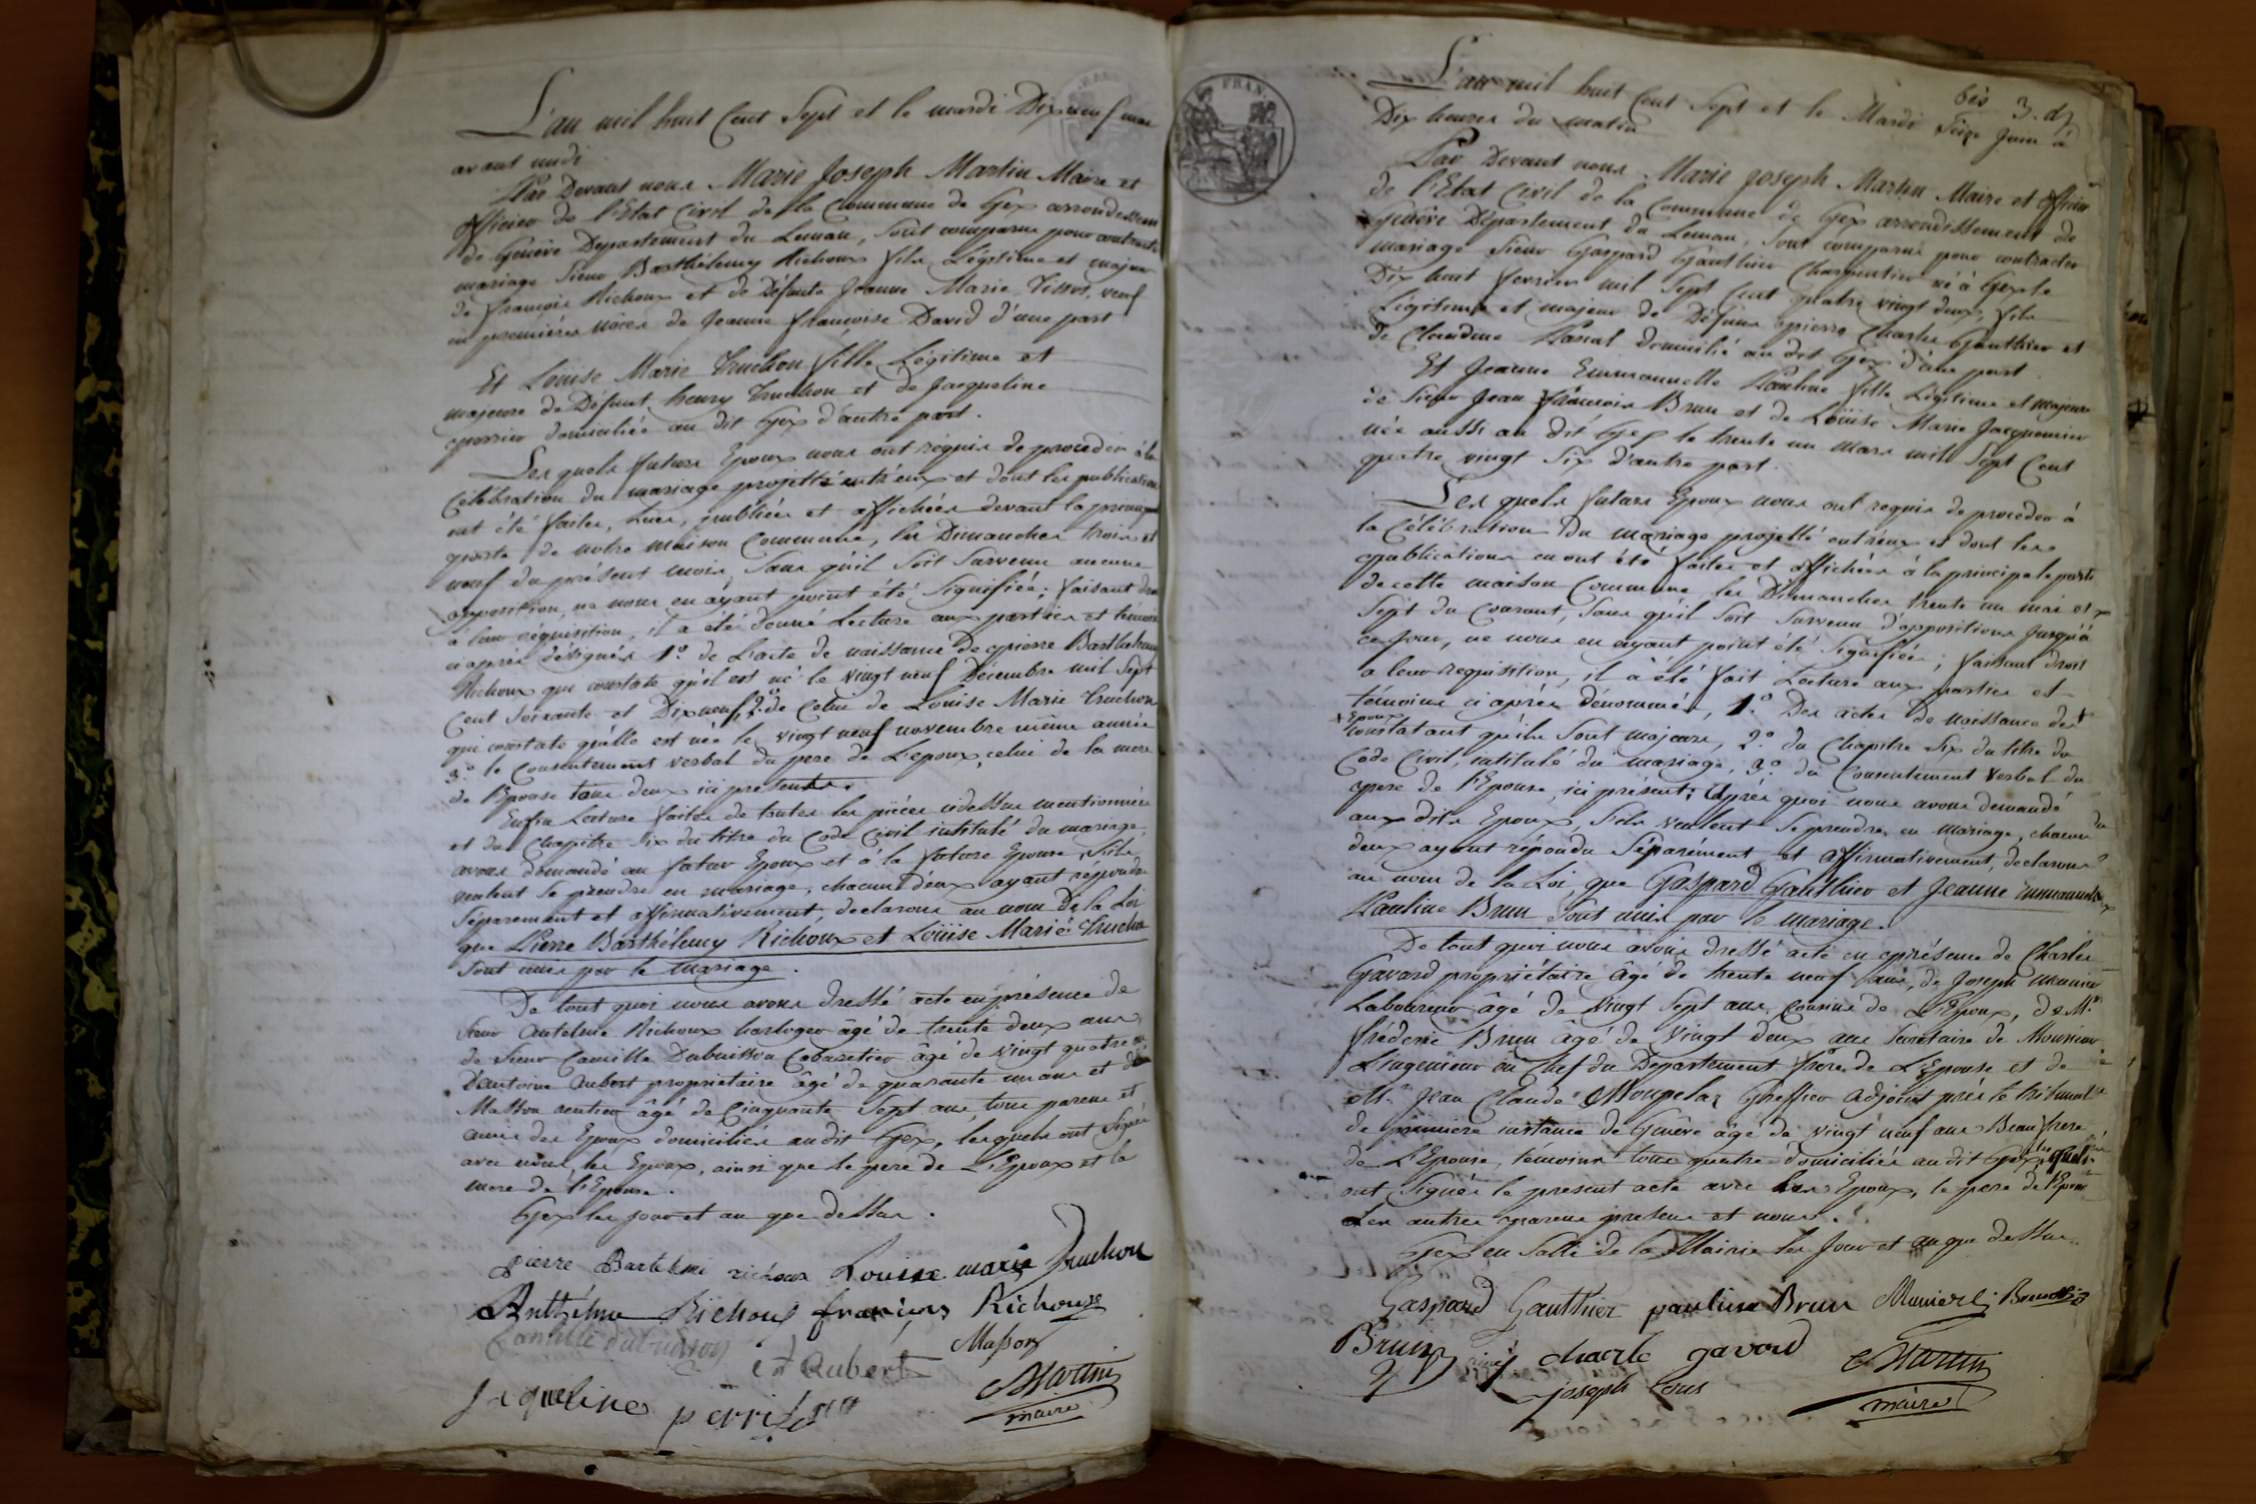 L'an mil huit Cent Sept et le mardi Dix neuf mai
avant midi
Par Devant nous Marie Joseph Martin Maire et
officier de l'Etat Civil de la Commune de Gex arrondissem
de Genève Département du Leman, sont comparus pour contracter
mariage Sieur Barthélemy Richoux fils Légitime et majeur
de françois Richoux et de Défunte Jeanne Marie Tissot, veuf
en premières noces de Jeanne françoise David d'une part
Et Louise Marie Truchon fille Légitime et
majeure de Défunt henry Truchon et de Jacqueline
domiciliée au dit Gex d'autre part.
Les quels futurs Epoux nous ont réquis de proceder à la
Célébration du mariage projetté entr'eux et dont les publications
ont été faites, lues, publiées et affichées devant la principale
porte de notre maison Commune, les Dimanches trois et
neuf du présent mois, sans qu'il soit survenu aucune
opposition, ne nous en ayant point été signifiée; faisant droit
à leur réquisition, il a été donné lecture aux parties et temoins
ci après désignés 1.º de l'acte de naissance de pierre Barthelemy
Richoux qui constate qu'il est né le vingt neuf Décembre mil Sept
Cent soixante et Dix neuf, 2.º de Celui de Louise Marie Truchon
qui constate qu'elle est née le vingt neuf novembre même année
3.º le Consentement verbal du pere de L'epoux, celui de la mere
de l'Epouse tous deux ici presents.
Enfin Lecture faite de toutes les pièces cidessus mentionnées
et du Chapitre Six du titre du Code Civil intitulé du mariage,
avons demandé au futur Epoux et à la future Epouse, s'ils
veulent se prendre en mariage, chacun d'eux ayant répondu
Séparement et affirmativement, declarons au nom de la Loi
que Pierre Barthélemy Richoux et Louise Marie Truchon
sont unis par le mariage.
De tout quoi nous avons dressé acte en présence de
Sieur Antelme Richoux horloger âgé de trente deux ans
de Sieur Camille Dubuisson Cabaretier âgé de vingt quatre
D'antoine Aubert propriétaire âgé de quarante un ans et de
Masson rentier âgé de Cinquante Sept ans, tous parens et
amis des Epoux domiciliés au dit Gex, lesquels ont signé
avec nous, les Epoux, ainsi que le pere de L'Epoux et la
mere de l'Epouse.
Gex les jour et an que dessus.
pierre Bartelemi richoux Louise marie Truchon
Anthelme Richoux françois Richoux
Camille dubuisson Masson
Aubert
Jaqueline Martin
maire
bis 3. d
L'an mil huit Cent Sept et le Mardi Seize Juin à
Dix heures du matin
Par Devant nous Marie Joseph Martin Maire et officier
de l'Etat Civil de la Commune de Gex arrondissement de
Genève Département du Leman, sont comparus pour contracter
mariage Sieur Gaspard Gauthier Charpentier né à Gex le
Dix huit fevrier mil Sept Cent quatre vingt deux, fils
Légitime et majeur de Défunt pierre Charles Gauthier et
de Claudine Pascal domicilié au dit Gex d'une part
Et Jeanne Emmanuelle Pauline fille Légitime et majeure
de Sieur Jean françois Brun et de Louise Marie Jacquemier
née aussi au dit Gex le trente un Mars mil Sept Cent
quatre vingt Six d'autre part.
Les quels futurs Epoux nous ont requis de proceder à
la Célébration du mariage projetté entr'eux et dont les
publications en ont été faites et affichées à la principale porte
de cette maison Commune, les Dimanches trente un mai et
Sept du Courant, sans qu'il soit survenu d'opposition jusqu'à
ce jour, ne nous en ayant point été signifiée; faisant droit
a leur requisition, il a été fait Lecture aux parties et
témoins ci après dénommés, 1.º Des actes de naissance des
Epoux
constatant qu'ils sont majeurs, 2.º du Chapitre Six du titre du
Code Civil, intitulé du mariage, 3.º du Consentement verbal du
pere de l'Epouse, ici présent; Après quoi nous avons demandé
aux dits Epoux, s'ils veulent se prendre en mariage, chacun
deux ayant répondu Séparément et affirmativement, declarons
au nom de la Loi, que Gaspard Gauthier et Jeanne Emmanuelle
Pauline Brun sont unis par le mariage.
De tout quoi nous avons dressé acte en présence de Charles
Gavard propriétaire âgé de trente neuf ans, de Joseph Munier
Laboureur âgé de vingt Sept ans, Cousins de L'Epoux, de Mr.
fréderic Brun âgé de vingt deux ans Secretaire de Monsieur
L'ingenieur en Chef du Departement frere de L'Epouse et de
Mr. Jean Claude Greffier adjoint près le tribunal
de premiere instance de Genève âgé de vingt neuf ans Beau frere
de L'Epouse, temoins tous quatre domiciliés au dit Gex, lesquels
ont signés le present acte avec les Epoux, le pere de l'Epouse
Les autres parens presens et nous.
Gex en Salle de la Mairie les Jour et an que dessus.
Gaspard Gauthier pauline Brun Munier
Brun charle gavard Martin
joseph maire